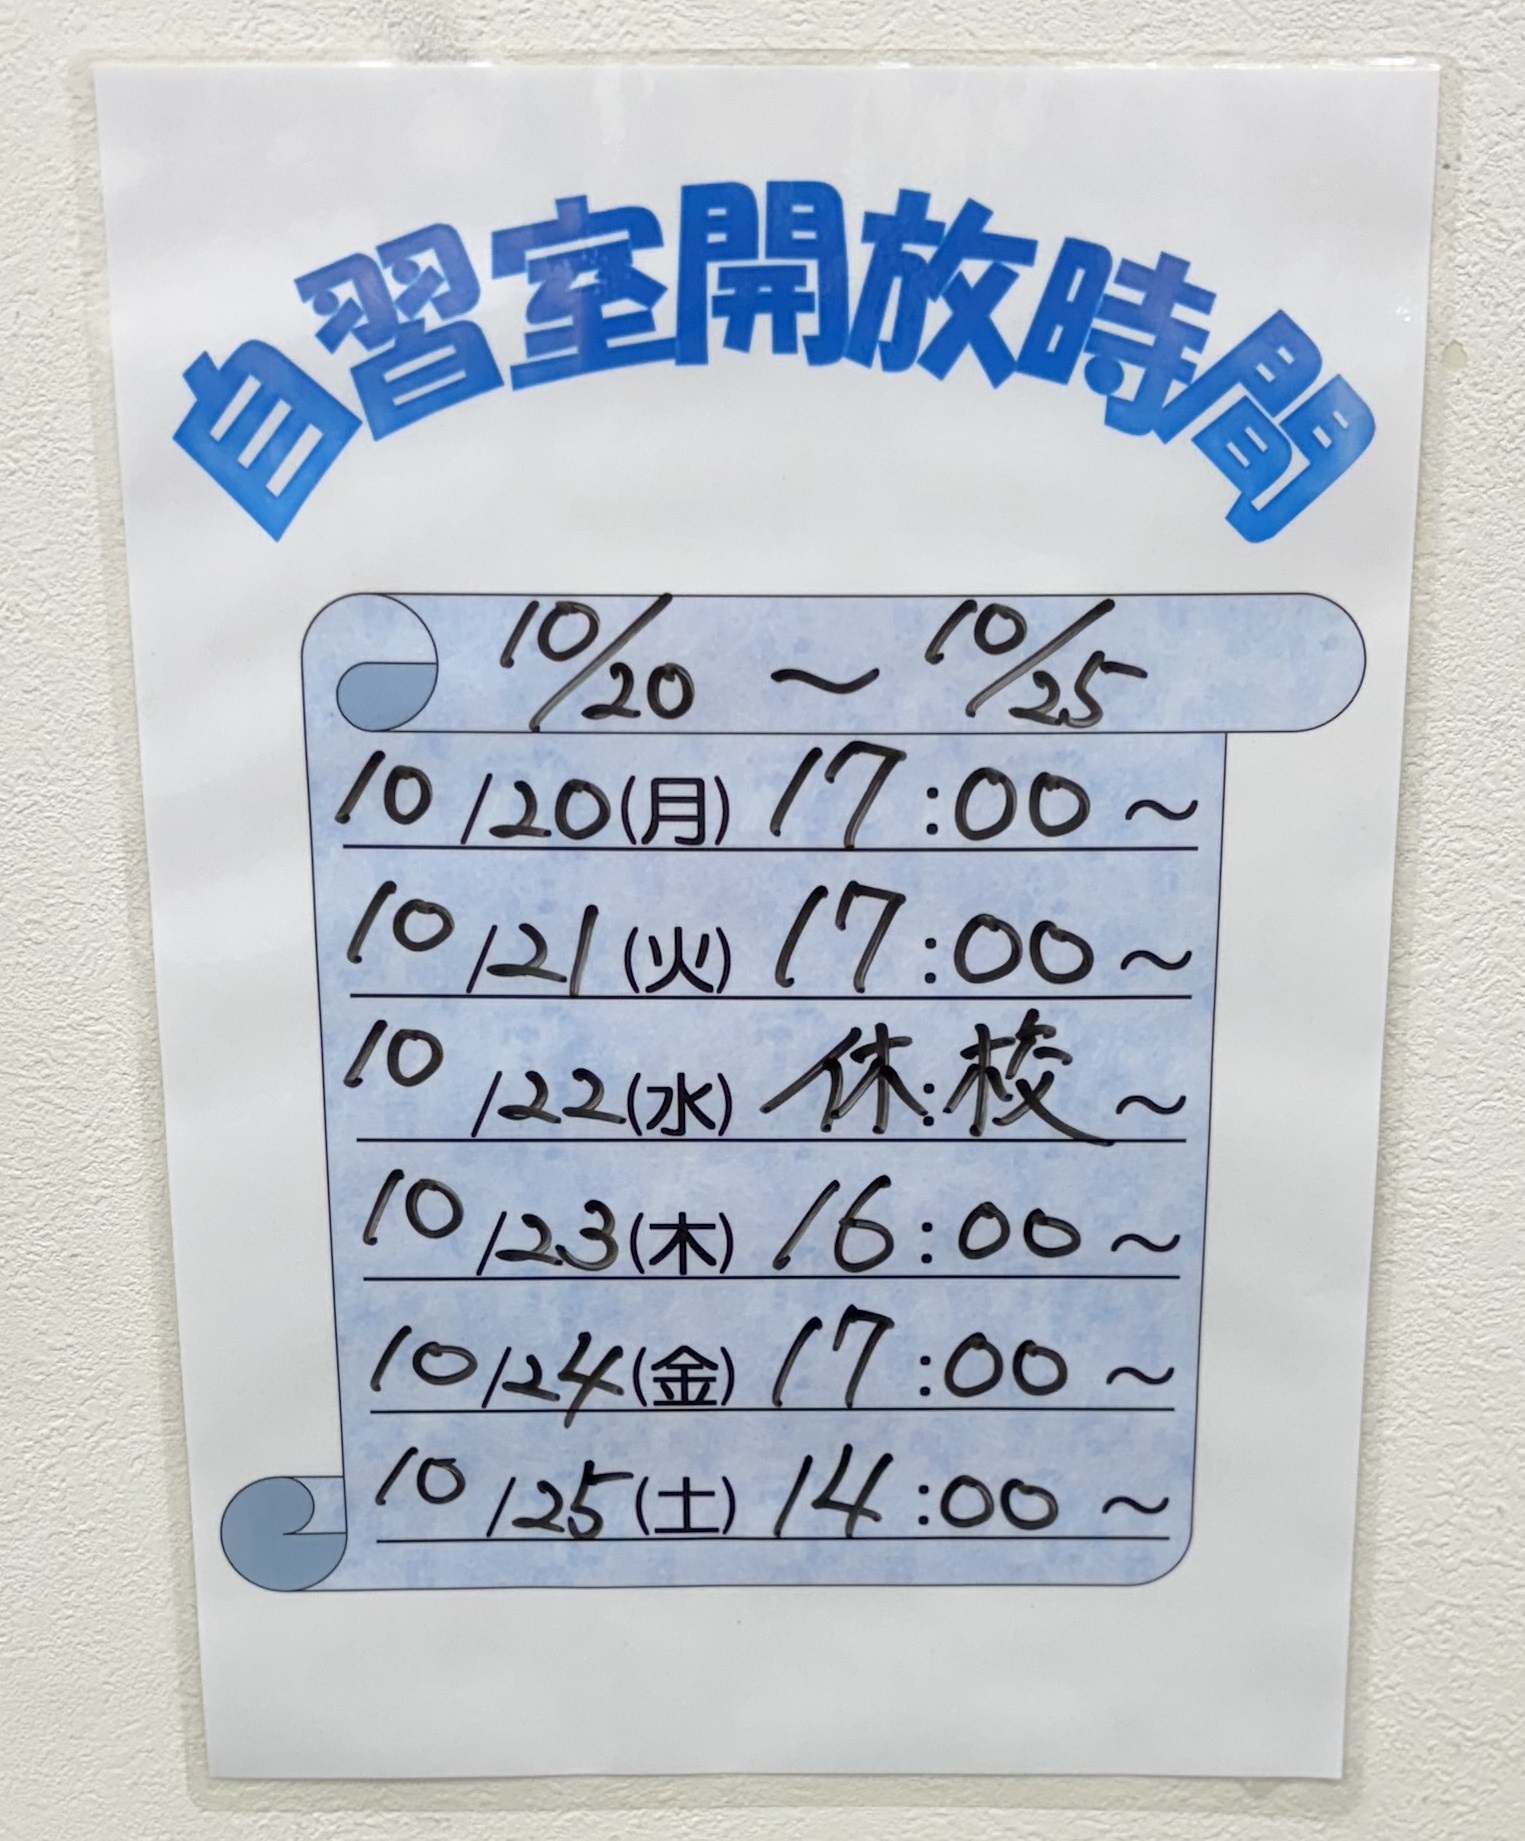 自習室開放時間
10/20 ~ 10/25
10/20(月) 17:00~
10/21(火) 17:00~
10/22(水) 休:校~
10/23(木) 16:00~
10/24(金) 17:00~
10/25(土) 14:00~